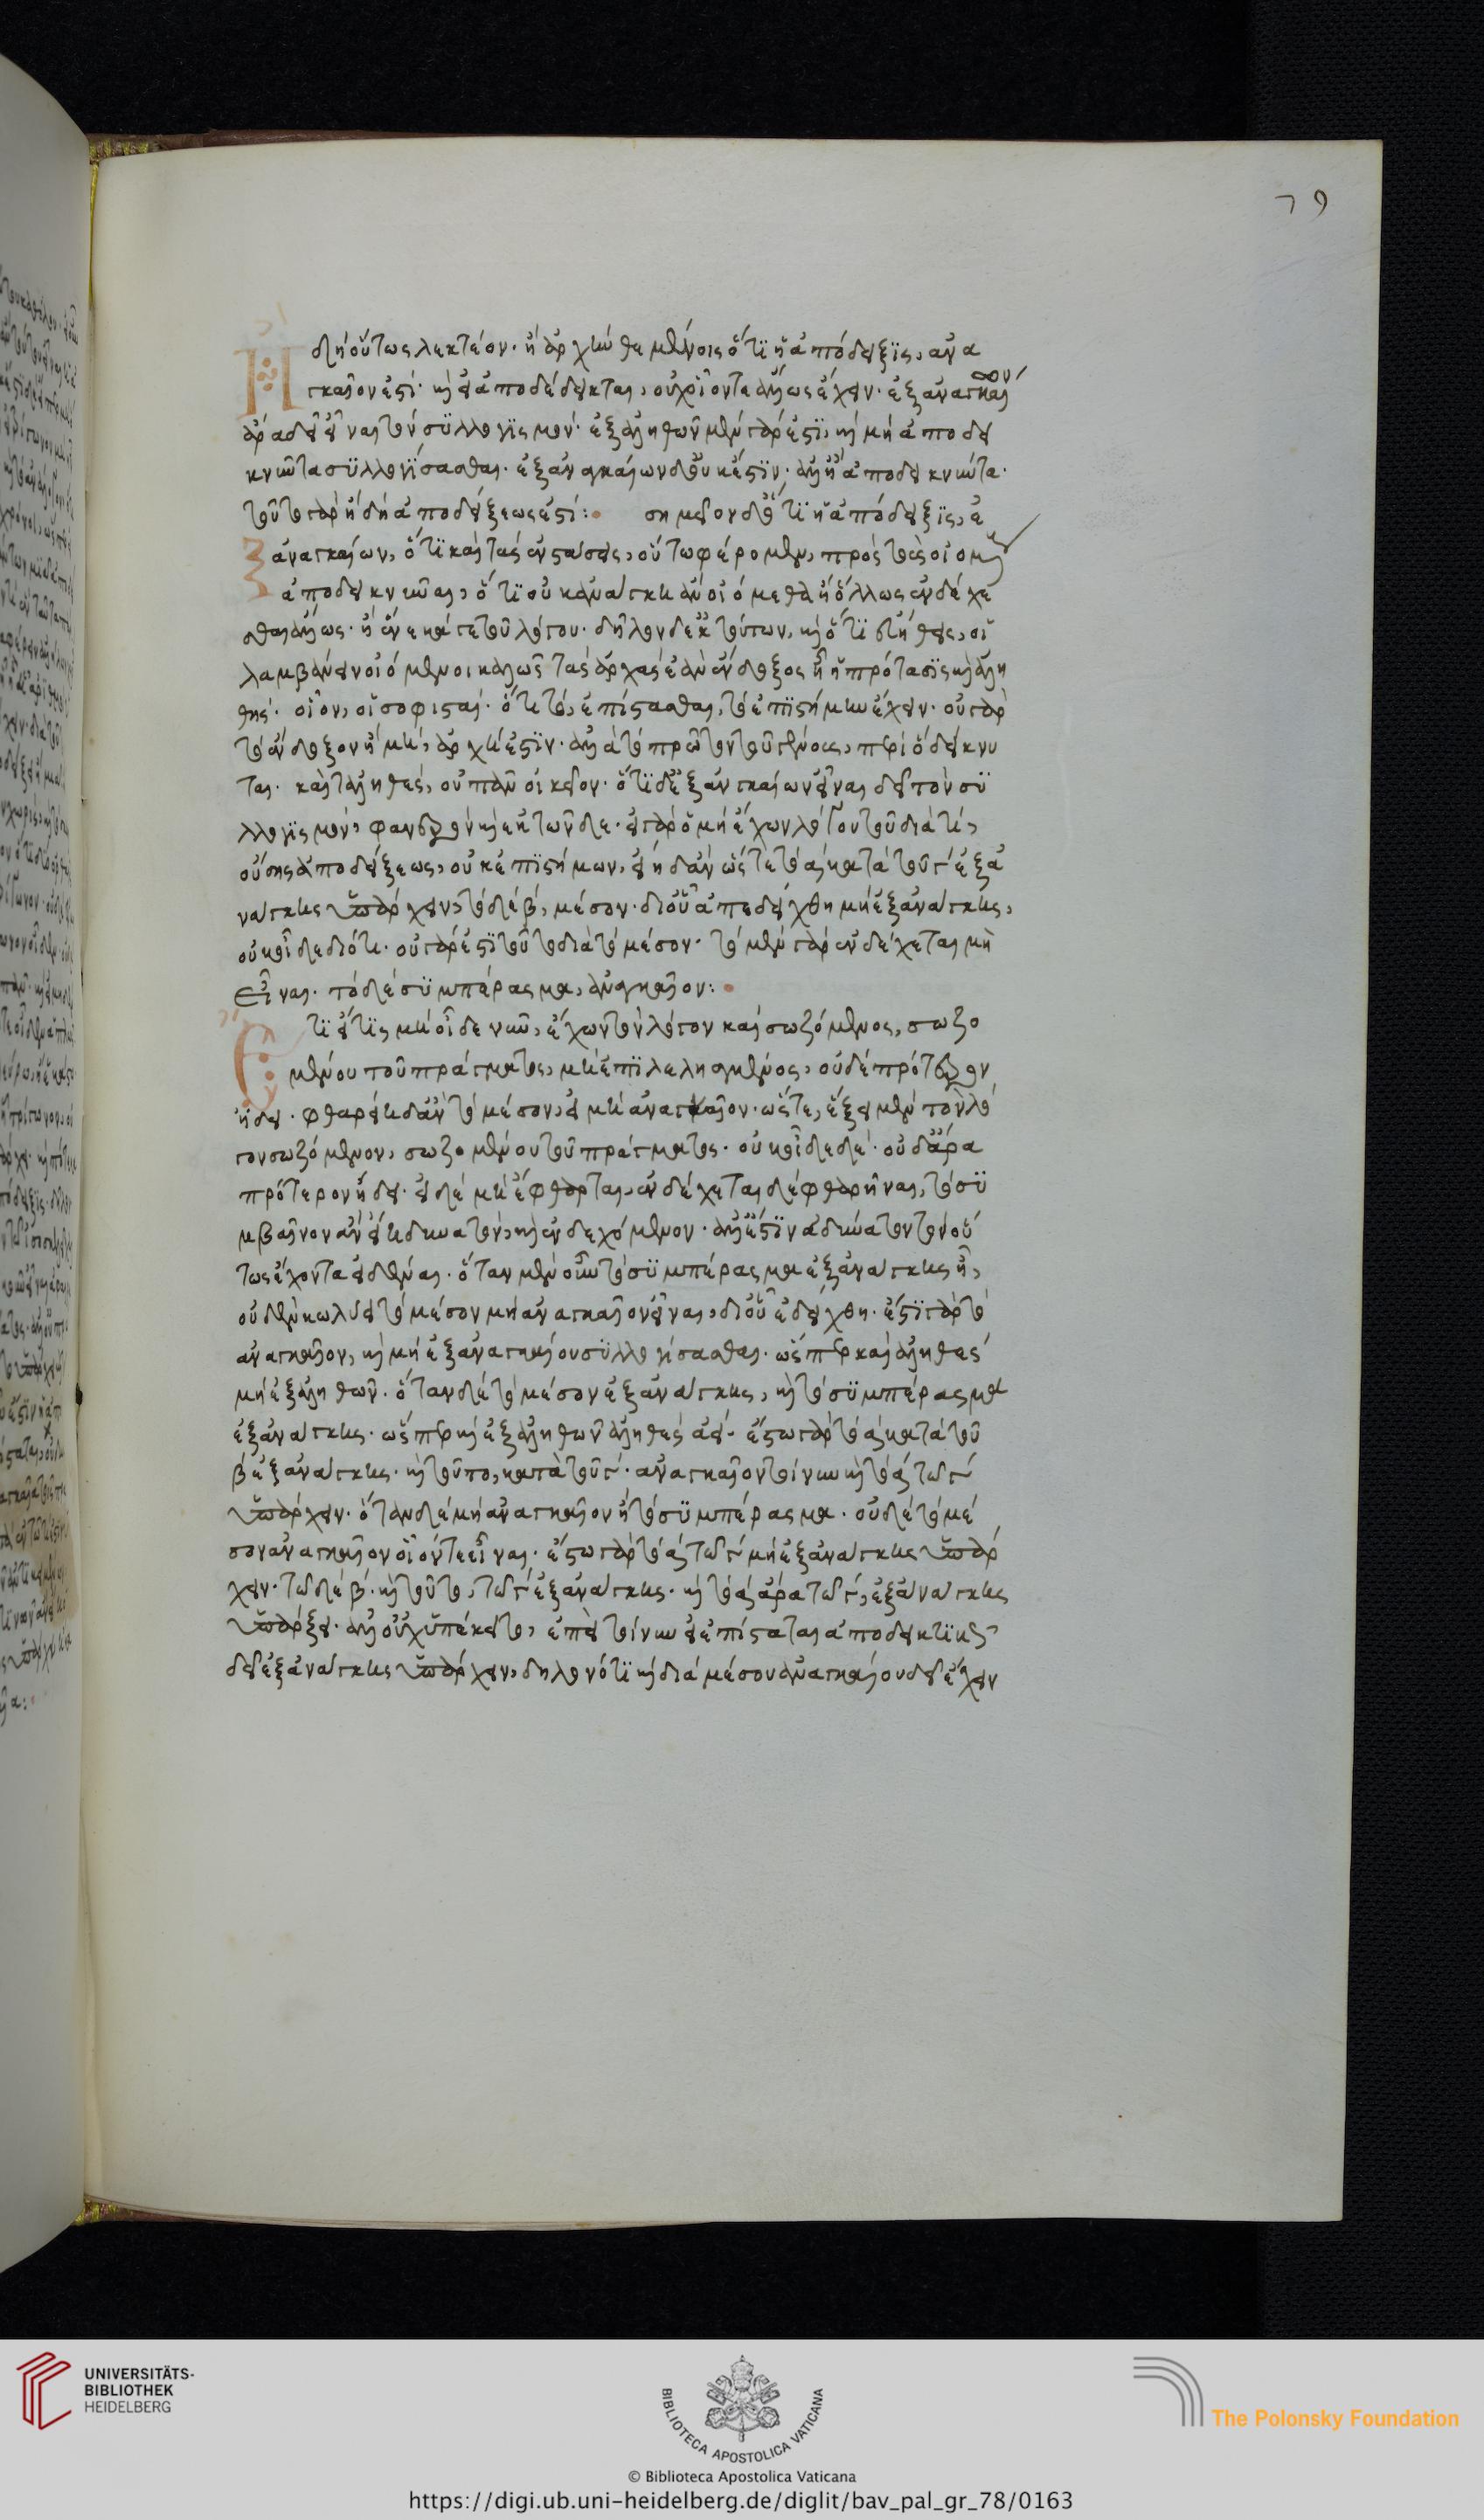 79
Ἢ δὴ οὕτως λεκτέον· ἢ ἀρχὴν θεμένοις ὅτι ἡ ἀπόδειξις, ἀνα
γκαῖον ἐστί· καὶ εἰ ἀποδέδεικται, οὐχ οἷόν τε ἄλλως ἔχειν· ἐξ ἀναγκαίων
ἄρα δεῖ εἶναι τὸν συλλογισμόν· ἐξ ἀληθῶν μὲν γὰρ ἐστὶ, καὶ μὴ ἀποδει
κνῦντα συλλογίσασθαι· ἐξ ἀναγκαίων δ' οὐκ ἔστιν· ἀλλ' ἢ ἀποδεικνύντα·
τοῦτο γὰρ ἤδη ἀποδείξεως ἐστί: σημεῖον δ' ὅτι ἡ ἀπόδειξις, ἐ
ξ ἀναγκαίων, ὅτι καὶ τὰς ἐνστάσεις, οὕτω φέρομεν, πρὸς τοὺς οἰομένους
ἀποδεικνῦναι, ὅτι οὐκ ἀνάγκη ἂν οἰόμεθα ἢ ὅλως ἐνδέχε
σθαι ἄλλως· ἢ ἕνεκά γε τοῦ λόγου· δῆλον δ' ἐκ τούτων, καὶ ὅτι εὐήθεις, οἱ
λαμβάνειν οἰόμενοι καλῶς τὰς ἀρχὰς ἐὰν ἔνδοξος ᾖ ἡ πρότασις καὶ ἀλη
θής· οἷον, οἱ σοφισταί· ὅτι τὸ, ἐπίστασθαι, τὸ ἐπιστήμην ἔχειν· οὐ γὰρ
τὸ ἔνδοξον ἢ μὴ, ἀρχή ἐστιν· ἀλλὰ τὸ πρῶτον τοῦ γένους, περὶ ὃ δείκνυ
ται· καὶ τἀληθὲς, οὐ πᾶν οἰκεῖον· ὅτι δ' ἐξ ἀναγκαίων εἶναι δεῖ τὸν συ
λλογισμόν, φανερὸν καὶ ἐκ τῶνδε· εἰ γὰρ ὁ μὴ ἔχων λόγον τοῦ διὰ τί,
οὔσης ἀποδείξεως, οὐκ ἐπιστήμων, εἴη δ' ἂν ὥστε τὸ α κατὰ τοῦ γ ἐξ ἀ
νάγκης ὑπάρχειν, τὸ δὲ β, μέσον· δι' οὗ ἀπεδείχθη μὴ ἐξ ἀνάγκης,
οὐκ οἶδε διότι· οὐ γὰρ ἐστὶ τοῦτο διὰ τὸ μέσον· τὸ μὲν γὰρ ἐνδέχεται μὴ
εἶναι· τὸ δὲ συμπέρασμα, ἀναγκαῖον:
Ἔτι εἴ τις μὴ οἶδε νῦν, ἔχων τὸν λόγον καὶ σωζόμενος, σωζο
μένου τοῦ πράγματος, μὴ ἐπιλελησμένος, οὐδὲ πρότερον
ᾔδει· φθαρείη δ' ἂν τὸ μέσον, εἰ μὴ ἀναγκαῖον· ὥστε, ἕξει μὲν τὸν λό
γον σωζόμενον, σωζομένου τοῦ πράγματος· οὐκ οἶδε δέ· οὐδ' ἄρα
πρότερον ᾔδει· εἰ δὲ μὴ ἔφθαρται, ἐνδέχεται δὲ φθαρῆναι, τὸ συ
μβαῖνον ἂν εἴη δυνατὸν, καὶ ἐνδεχόμενον· ἀλλ' ἔστιν ἀδύνατον τὸν οὕ
τως ἔχοντα εἰδέναι· ὅταν μὲν οὖν τὸ συμπέρασμα ἐξ ἀνάγκης ᾖ,
οὐδὲν κωλύει τὸ μέσον μὴ ἀναγκαῖον εἶναι, δι' οὗ ἐδείχθη· ἔστι γὰρ τὸ
ἀναγκαῖον, καὶ μὴ ἐξ ἀναγκαίου συλλογίσασθαι· ὥσπερ καὶ ἀληθὲς
μὴ ἐξ ἀληθῶν· ὅταν δὲ τὸ μέσον ἐξ ἀνάγκης, καὶ τὸ συμπέρασμα
ἐξ ἀνάγκης· ὥσπερ καὶ ἐξ ἀληθῶν ἀληθὲς ἀεί· ἔστω γὰρ τὸ α κατὰ τοῦ
β ἐξ ἀνάγκης· καὶ τοῦτο, κατὰ τοῦ γ· ἀναγκαῖον τοίνυν καὶ τὸ α τῷ γ
ὑπάρχειν· ὅταν δὲ μὴ ἀναγκαῖον ᾖ τὸ συμπέρασμα· οὐδὲ τὸ μέ
σον ἀναγκαῖον οἷόν τε εἶναι· ἔστω γὰρ τὸ α τῷ γ μὴ ἐξ ἀνάγκης ὑπάρ
χειν· τῷ δὲ β· καὶ τοῦτο, τῷ γ ἐξ ἀνάγκης· καὶ τὸ α ἄρα τῷ γ, ἐξ ἀνάγκης
ὑπάρξει· ἀλλ' οὐχ ὑπέκειτο, ἐπεὶ τοίνυν εἰ ἐπίσταται ἀποδεικτικῶς
δεῖ ἐξ ἀνάγκης ὑπάρχειν, δῆλον ὅτι καὶ διὰ μέσου ἀναγκαίου δεῖ ἔχειν
UNIVERSITÄTS-
BIBLIOTHEK
HEIDELBERG
BIBLIOTECA APOSTOLICA VATICANA
The Polonsky Foundation
© Biblioteca Apostolica Vaticana
https://digi.ub.uni-heidelberg.de/diglit/bav_pal_gr_78/0163